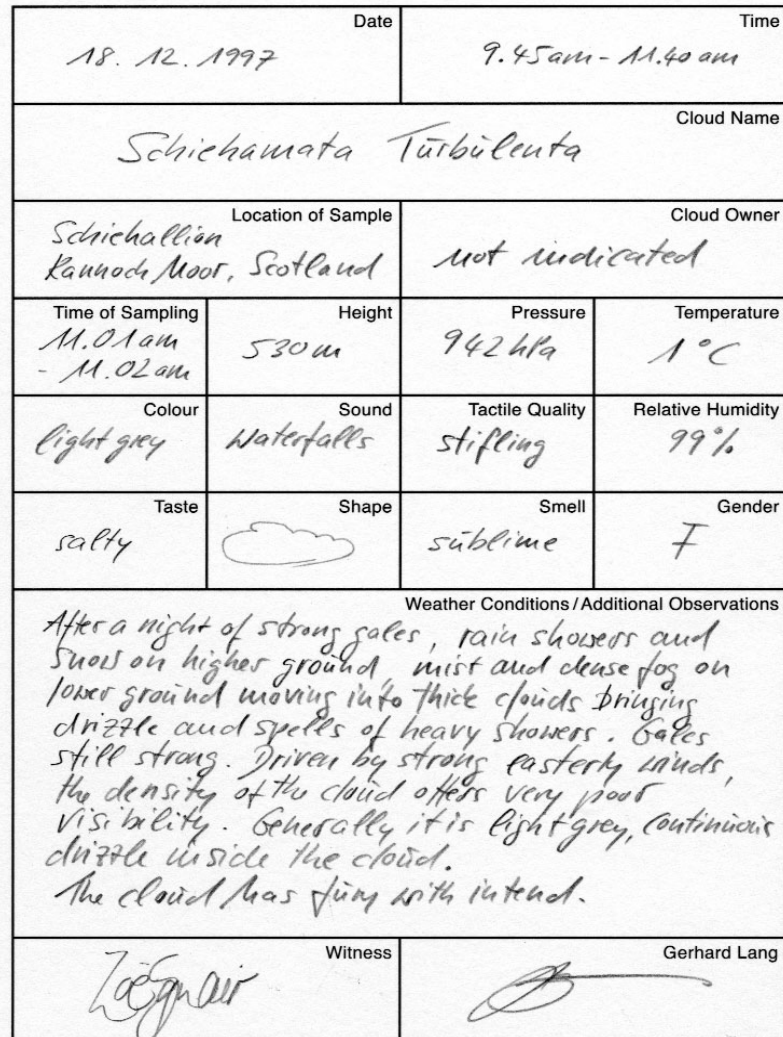 Date
18. 12. 1997
Time
9.45am - 11.40 am
Cloud Name
Schiehamata Turbulenta
Location of Sample
Schiehallion
Rannoch Moor, Scotland
Cloud Owner
not indicated
Time of Sampling
11.01am
- 11.02am
Height
530m
Pressure
942 hPa
Temperature
1°C
Colour
light grey
Sound
Waterfalls
Tactile Quality
stifling
Relative Humidity
99%
Taste
salty
Shape
Smell
sublime
Gender
F
Weather Conditions / Additional Observations
After a night of strong gales, rain showers and
snow on higher ground, mist and dense fog on
lower ground moving into thick clouds bringing
drizzle and spells of heavy showers. Gales
still strong. Driven by strong easterly winds,
the density of the cloud offers very poor
visibility. Generally it is light grey, continuous
drizzle inside the cloud.
The cloud has fury with intend.
Witness
Gerhard Lang